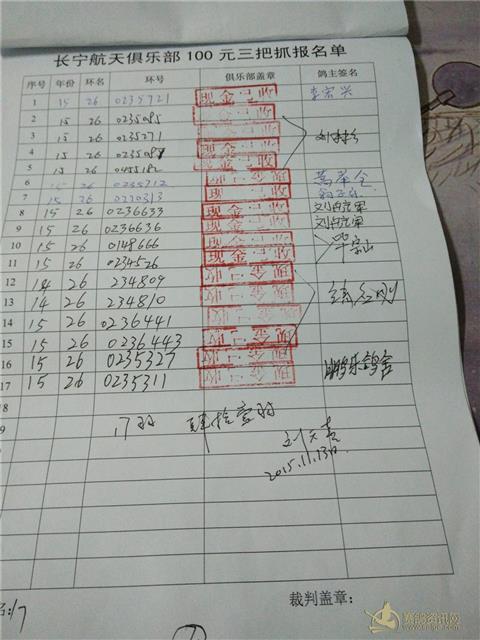 长宁航天俱乐部100元三把抓报名单
序号 年份 环名 环号 俱乐部盖章 鸽主签名
1 15 26 0235721 现金已收 李宏兴
2 15 26 0235085 现金已收
3 15 26 0235271 现金已收
4 15 26 0235087 现金已收
5 15 26 0455182 现金已收
6 15 26 0235712 现金已收
7 15 26 0220313 现金已收
8 15 26 0236633 现金已收
9 15 26 0236633 现金已收
10 15 26 0148666 现金已收
11 15 26 0234526 现金已收
12 14 26 234809 现金已收
13 14 26 234810 现金已收
14 15 26 0236441 现金已收
15 15 26 0236443 现金已收
16 15 26 0235327 现金已收
17 15 26 0235311 现金已收
18
17羽
2015.11.13日
裁判盖章：
赛鸽资讯网